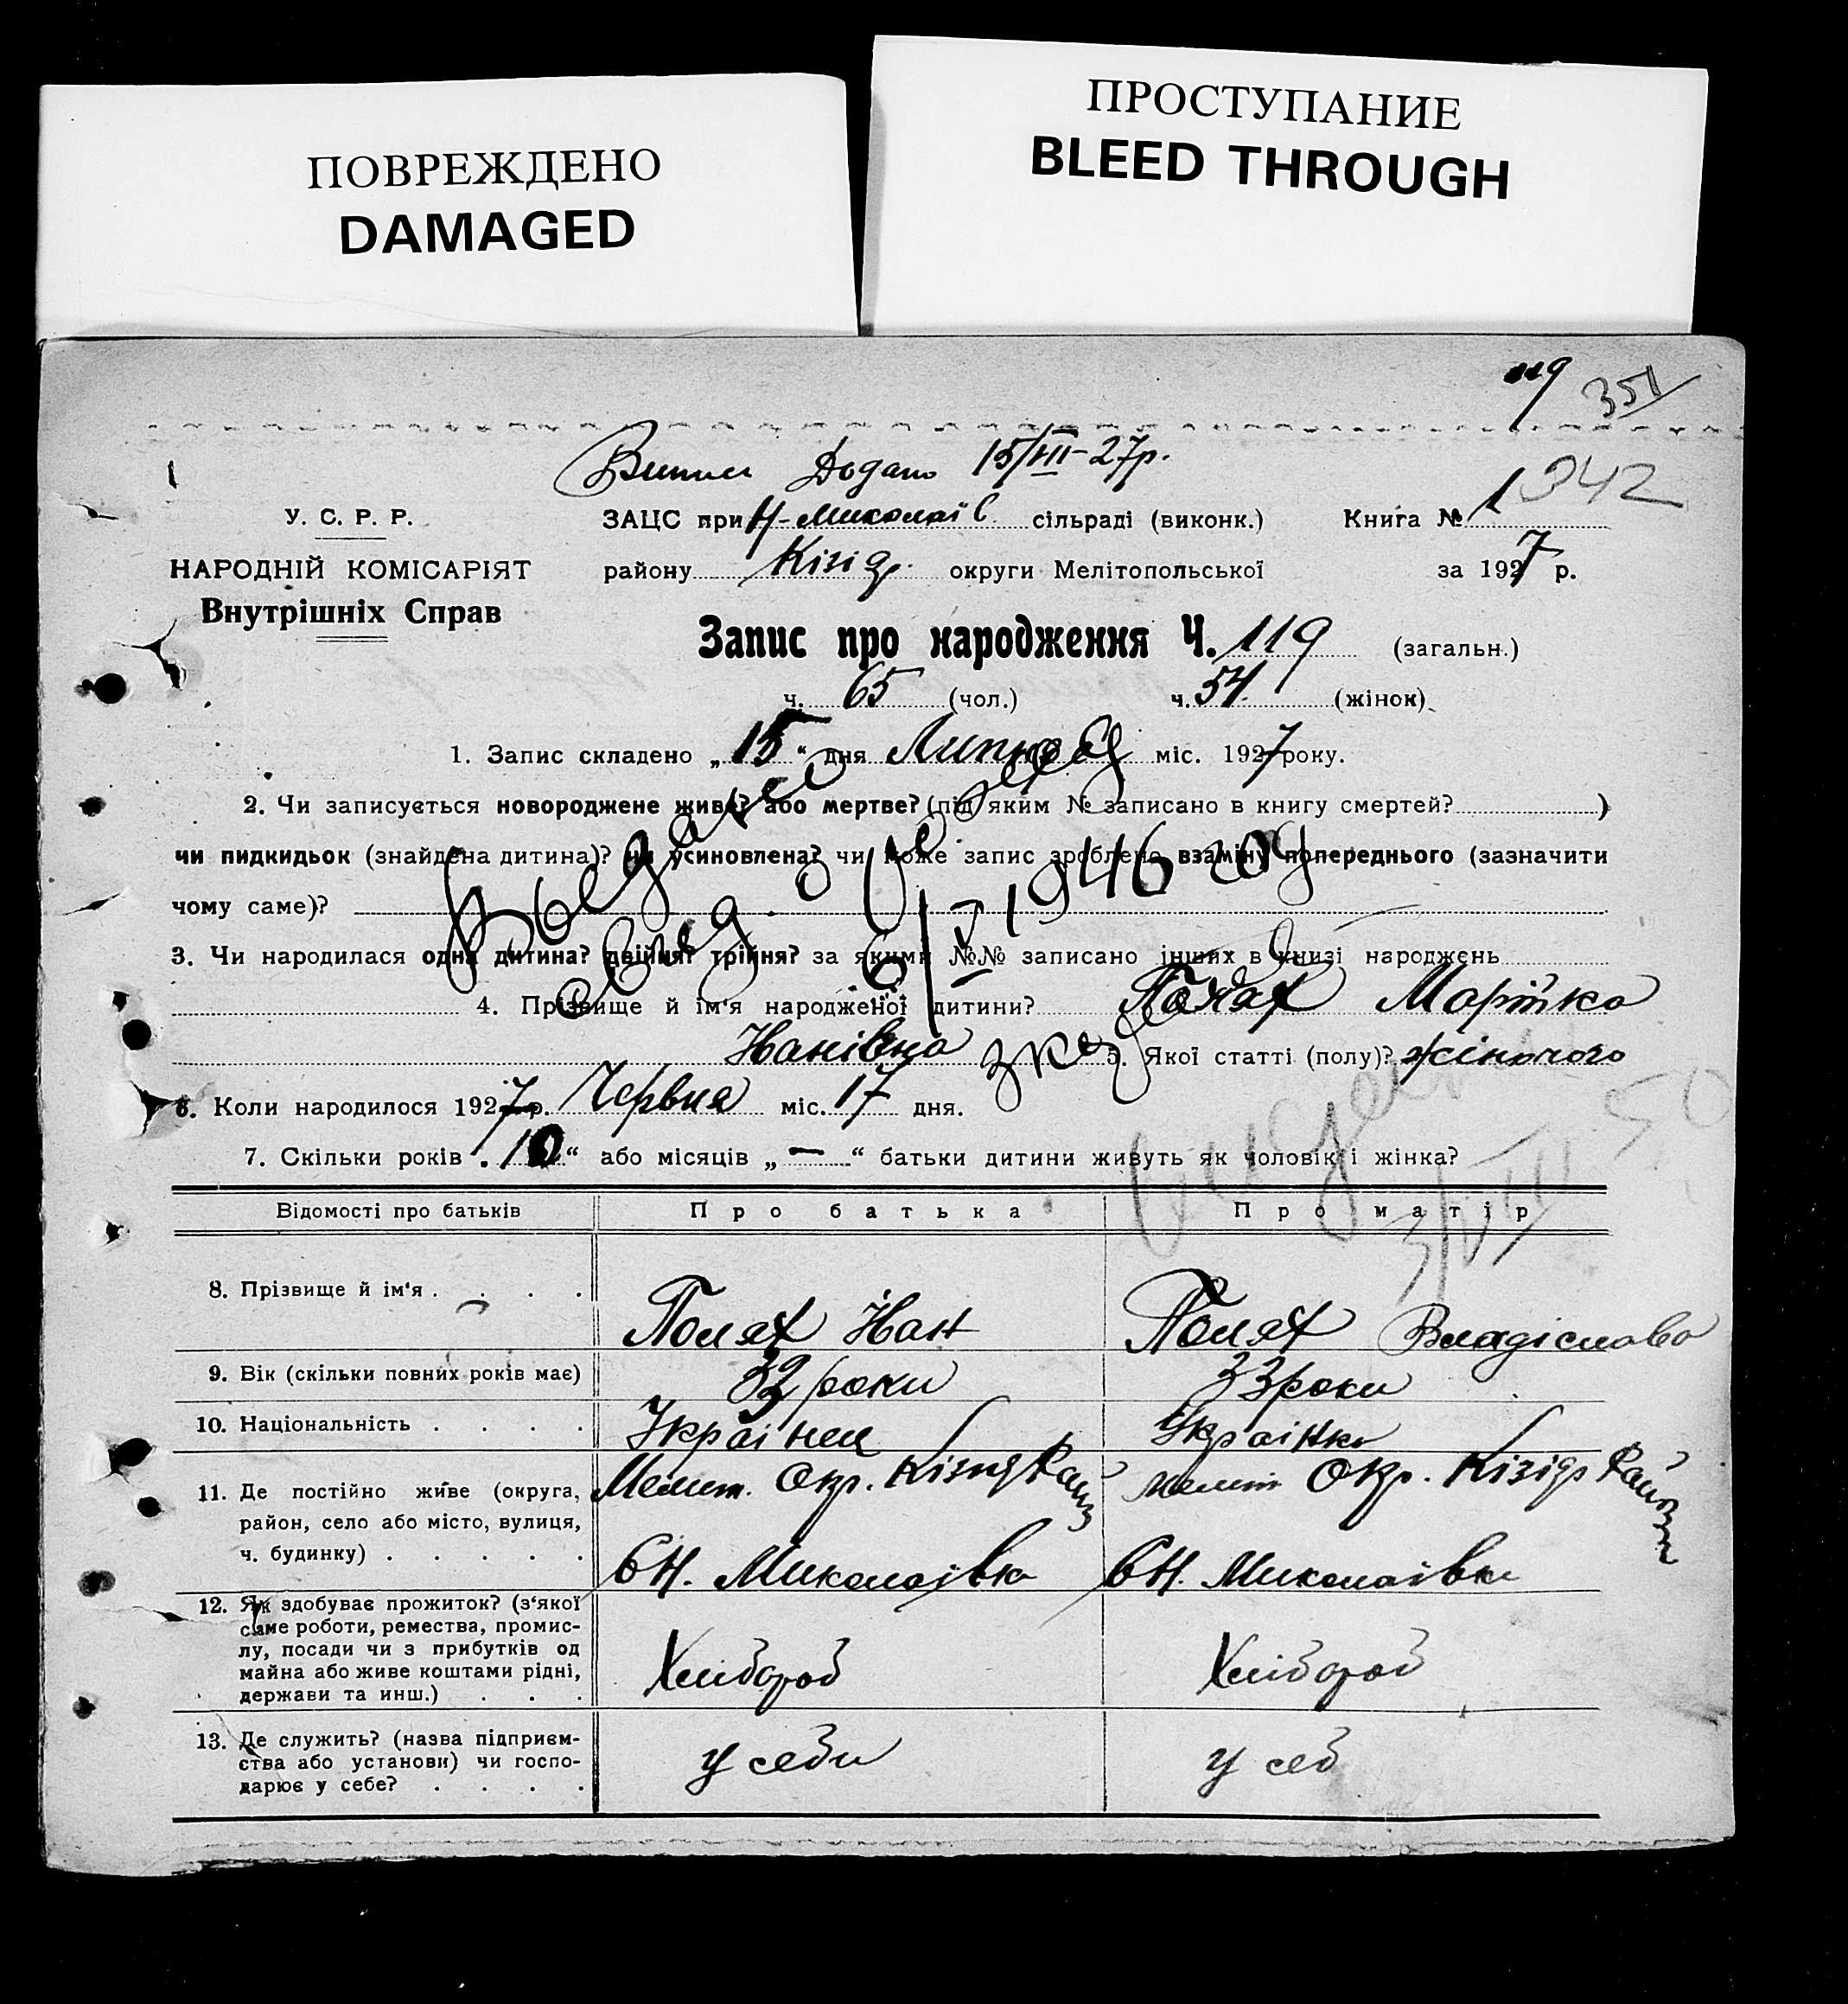 ПОВРЕЖДЕНО
DAMAGED
ПРОСТУПАНИЕ
BLEED THROUGH
119 351
Виписи Додано 15/III-27р.
У. С. Р. Р.
НАРОДНІЙ КОМІСАРІЯТ
Внутрішніх Справ
ЗАЦС при Н-Миколаїв. сільраді (виконк.) Книга № 1 342
району Кізіяр. округи Мелітопольської за 1927 р.
Запис про народження Ч. 119 (загальн.)
ч. 65 (чол.) ч. 54. (жінок)
1. Запис складено „15“ дня Липня міс. 1927 року.
2. Чи записується новороджене живе? або мертве? (під яким № записано в книгу смертей? )
чи пидкидьок (знайдена дитина)? чи усиновлена? чи може запис зроблено взамінь попереднього (зазначити
чому саме)?
3. Чи народилася одна дитина? двійня? трійня? за якими №№ записано інших в книзі народжень
4. Прізвище й ім'я народженої дитини? Марійка
Иванівна 5. Якої статті (полу)? жіночого
6. Коли народилося 1927 р. Червня міс. 17 дня.
7. Скільки років „10“ або місяців „—“ батьки дитини живуть як чоловік і жінка?
Выдано
свид. о
6/V 1946 год
Відомості про батьків Про батька Про матір
8. Прізвище й ім'я . . . . Полях Иван Полях Владіслава
9. Вік (скільки повних років має) 32 роки 33 роки
10. Національність . . . . Українец Українка
11. Де постійно живе (округа, район, село або місто, вулиця, ч. будинку) . . . . .
Мелит. Окр. Кізіяр Мелит Окр. Кізіяр Району
Н. Миколаївка Н. Миколаівка
12. Як здобуває прожиток? (з'якої
саме роботи, ремества, промис-
лу, посади чи з прибутків од
майна або живе коштами рідні,
держави та инш.) . . .
Хлібороб Хлібороб
13. Де служить? (назва підприєм-
ства або установи) чи госпо-
дарює у себе? . . . .
у себи у себ